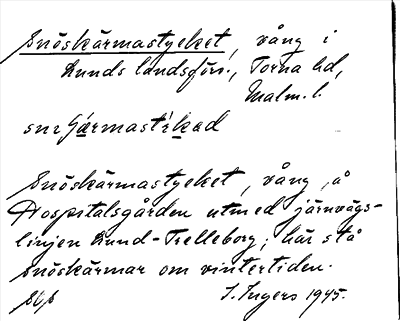 Snöskärmastycket, vång i
Lunds landsförs., Torna hd,
Malm. l.
Snöskärmastycket, vång, å
Hospitalsgården utmed järnvägs-
linjen Lund-Trelleborg; här stå
snöskärmar om vintertiden.
I. Ingers 1945.